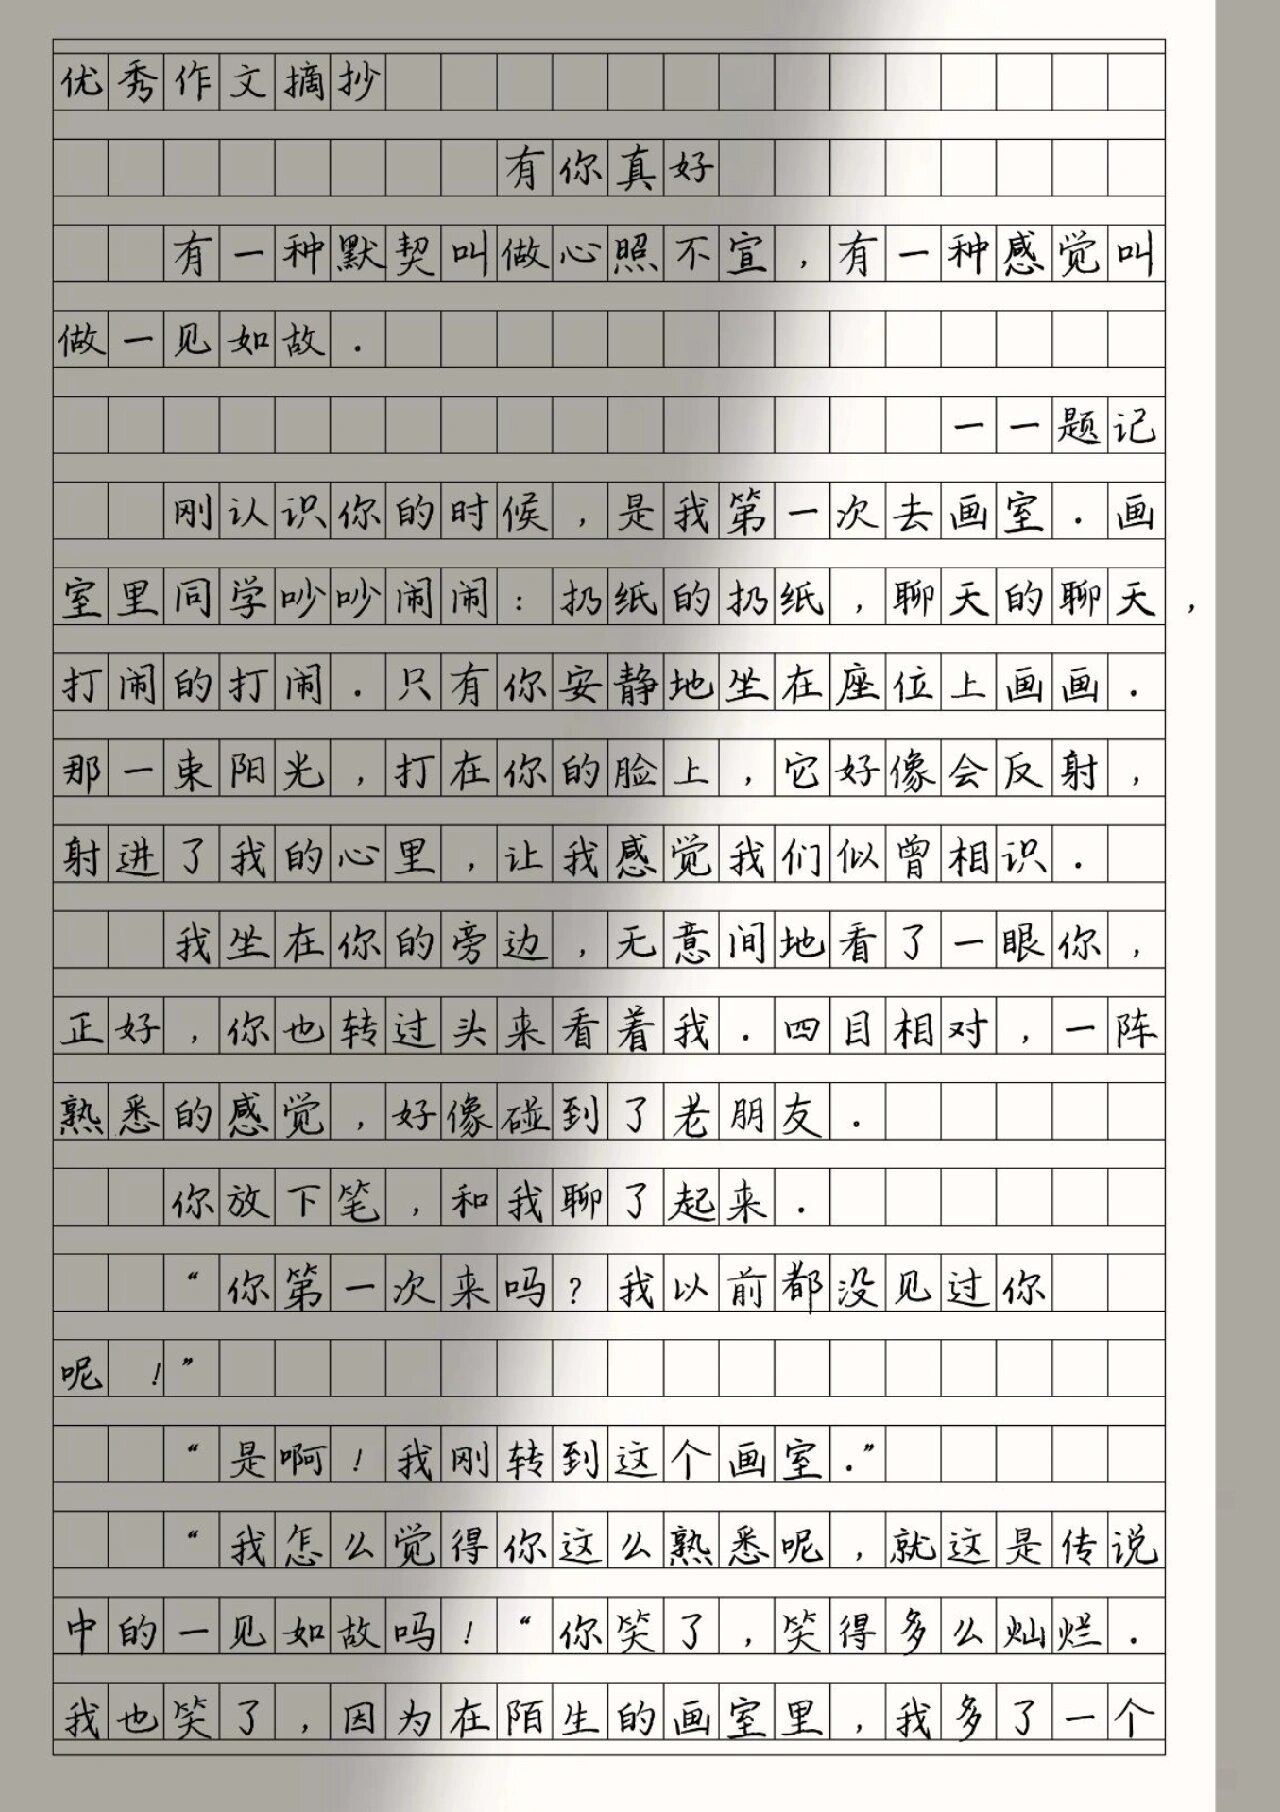 优秀作文摘抄
有你真好
有一种默契叫做心照不宣，有一种感觉叫
做一见如故．
一一题记
刚认识你的时候，是我第一次去画室．画
室里同学吵吵闹闹：扔纸的扔纸，聊天的聊天，
打闹的打闹．只有你安静地坐在座位上画画．
那一束阳光，打在你的脸上，它好像会反射，
射进了我的心里，让我感觉我们似曾相识．
我坐在你的旁边，无意间地看了一眼你，
正好，你也转过头来看着我．四目相对，一阵
熟悉的感觉，好像碰到了老朋友．
你放下笔，和我聊了起来．
“你第一次来吗？我以前都没见过你
呢！”
“是啊！我刚转到这个画室．”
“我怎么觉得你这么熟悉呢，就这是传说
中的一见如故吗！“你笑了，笑得多么灿烂．
我也笑了，因为在陌生的画室里，我多了一个